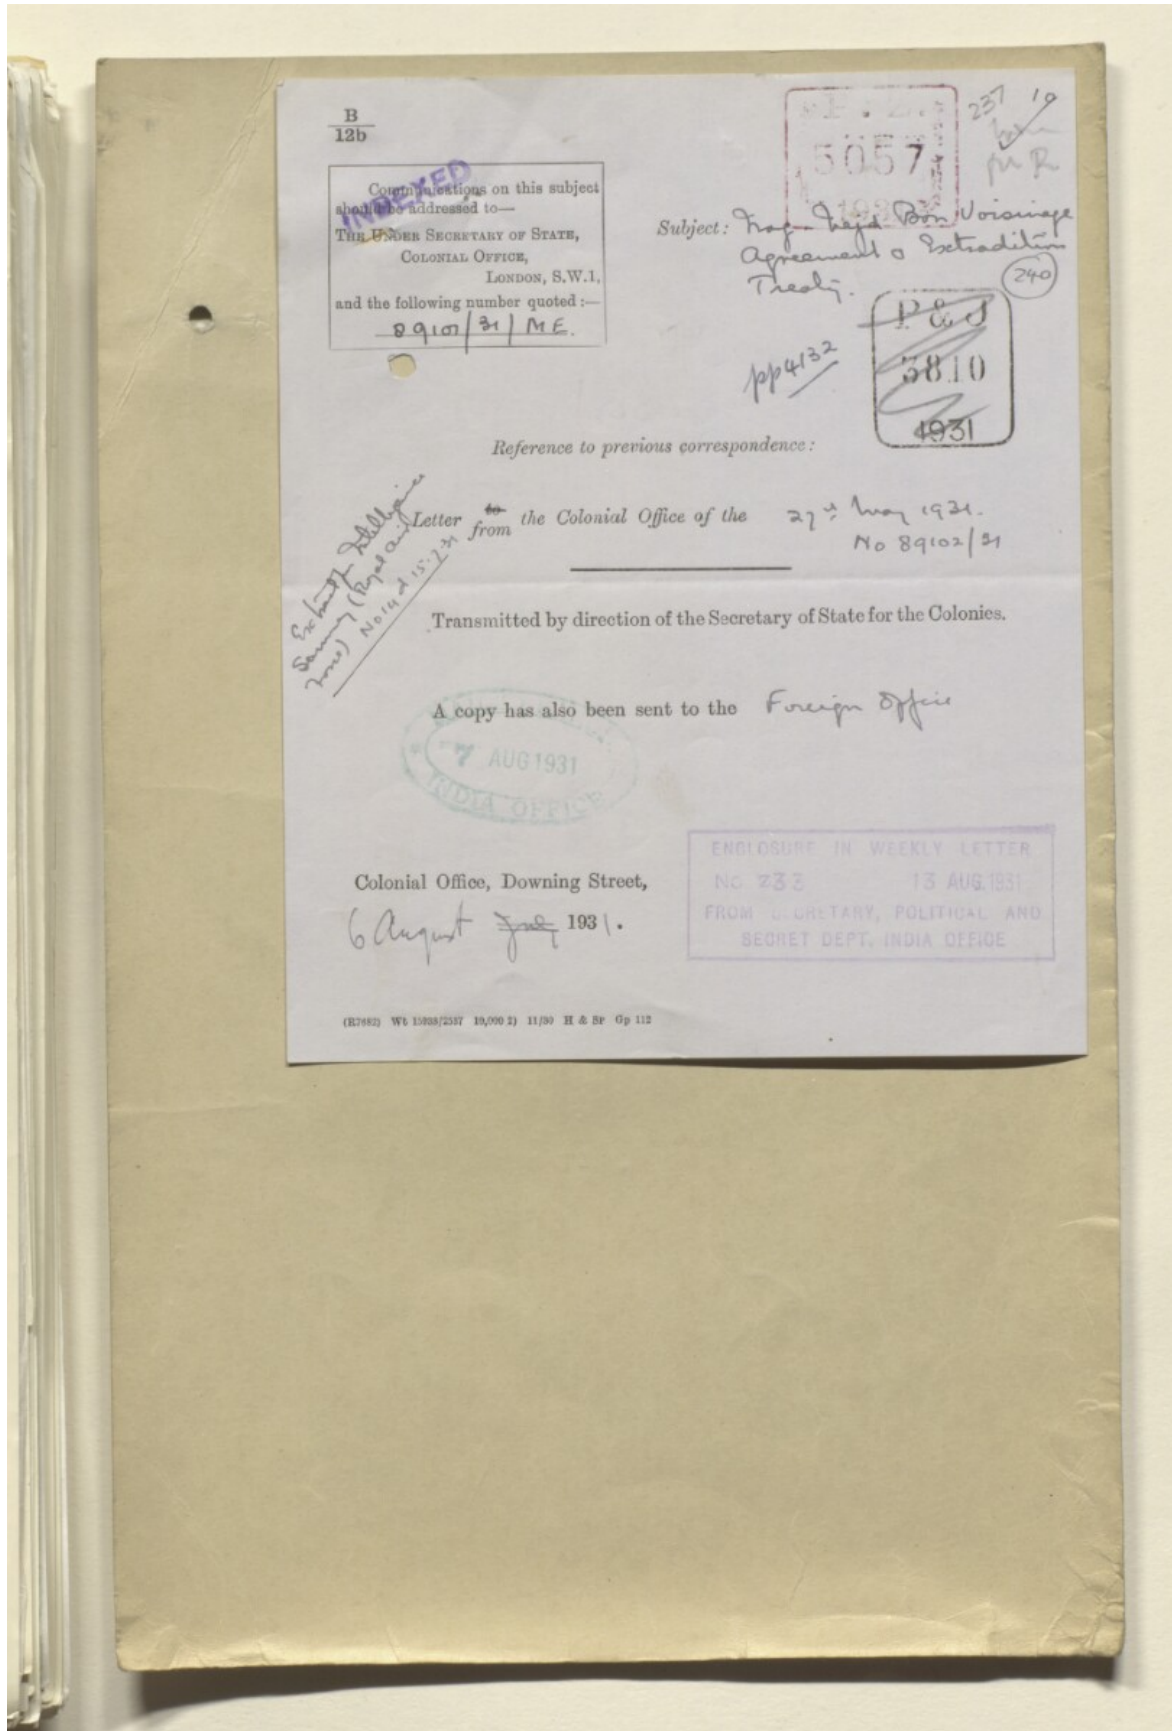 B
12b
INDEXED
Communications on this subject
should be addressed to—
THE UNDER SECRETARY OF STATE,
COLONIAL OFFICE,
LONDON, S.W.1,
and the following number quoted :—
89101/31/M E.
P.Z.
5057
1931
237
10
Subject: Iraq Nejd Bon Voisinage
Agreement & Extradition
Treaty.
240
pp4132
P & J
3810
1931
Reference to previous correspondence :
Letter to from the Colonial Office of the 27th May 1931.
No 89102/31
Extract fr Intelligence
Summy (Royal Air
Force) No 14 d 15.7.31
Transmitted by direction of the Secretary of State for the Colonies.
A copy has also been sent to the Foreign Office
7 AUG 1931
INDIA OFFICE
ENCLOSURE IN WEEKLY LETTER
No 233 13 AUG. 1931
FROM SECRETARY, POLITICAL AND
SECRET DEPT. INDIA OFFICE
Colonial Office, Downing Street,
6 August July 1931.
(R7682) Wt 15938/2537 10,000 2) 11/30 H & Sr Gp 112